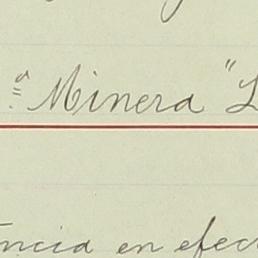 ª Minera "L
ncia en efec